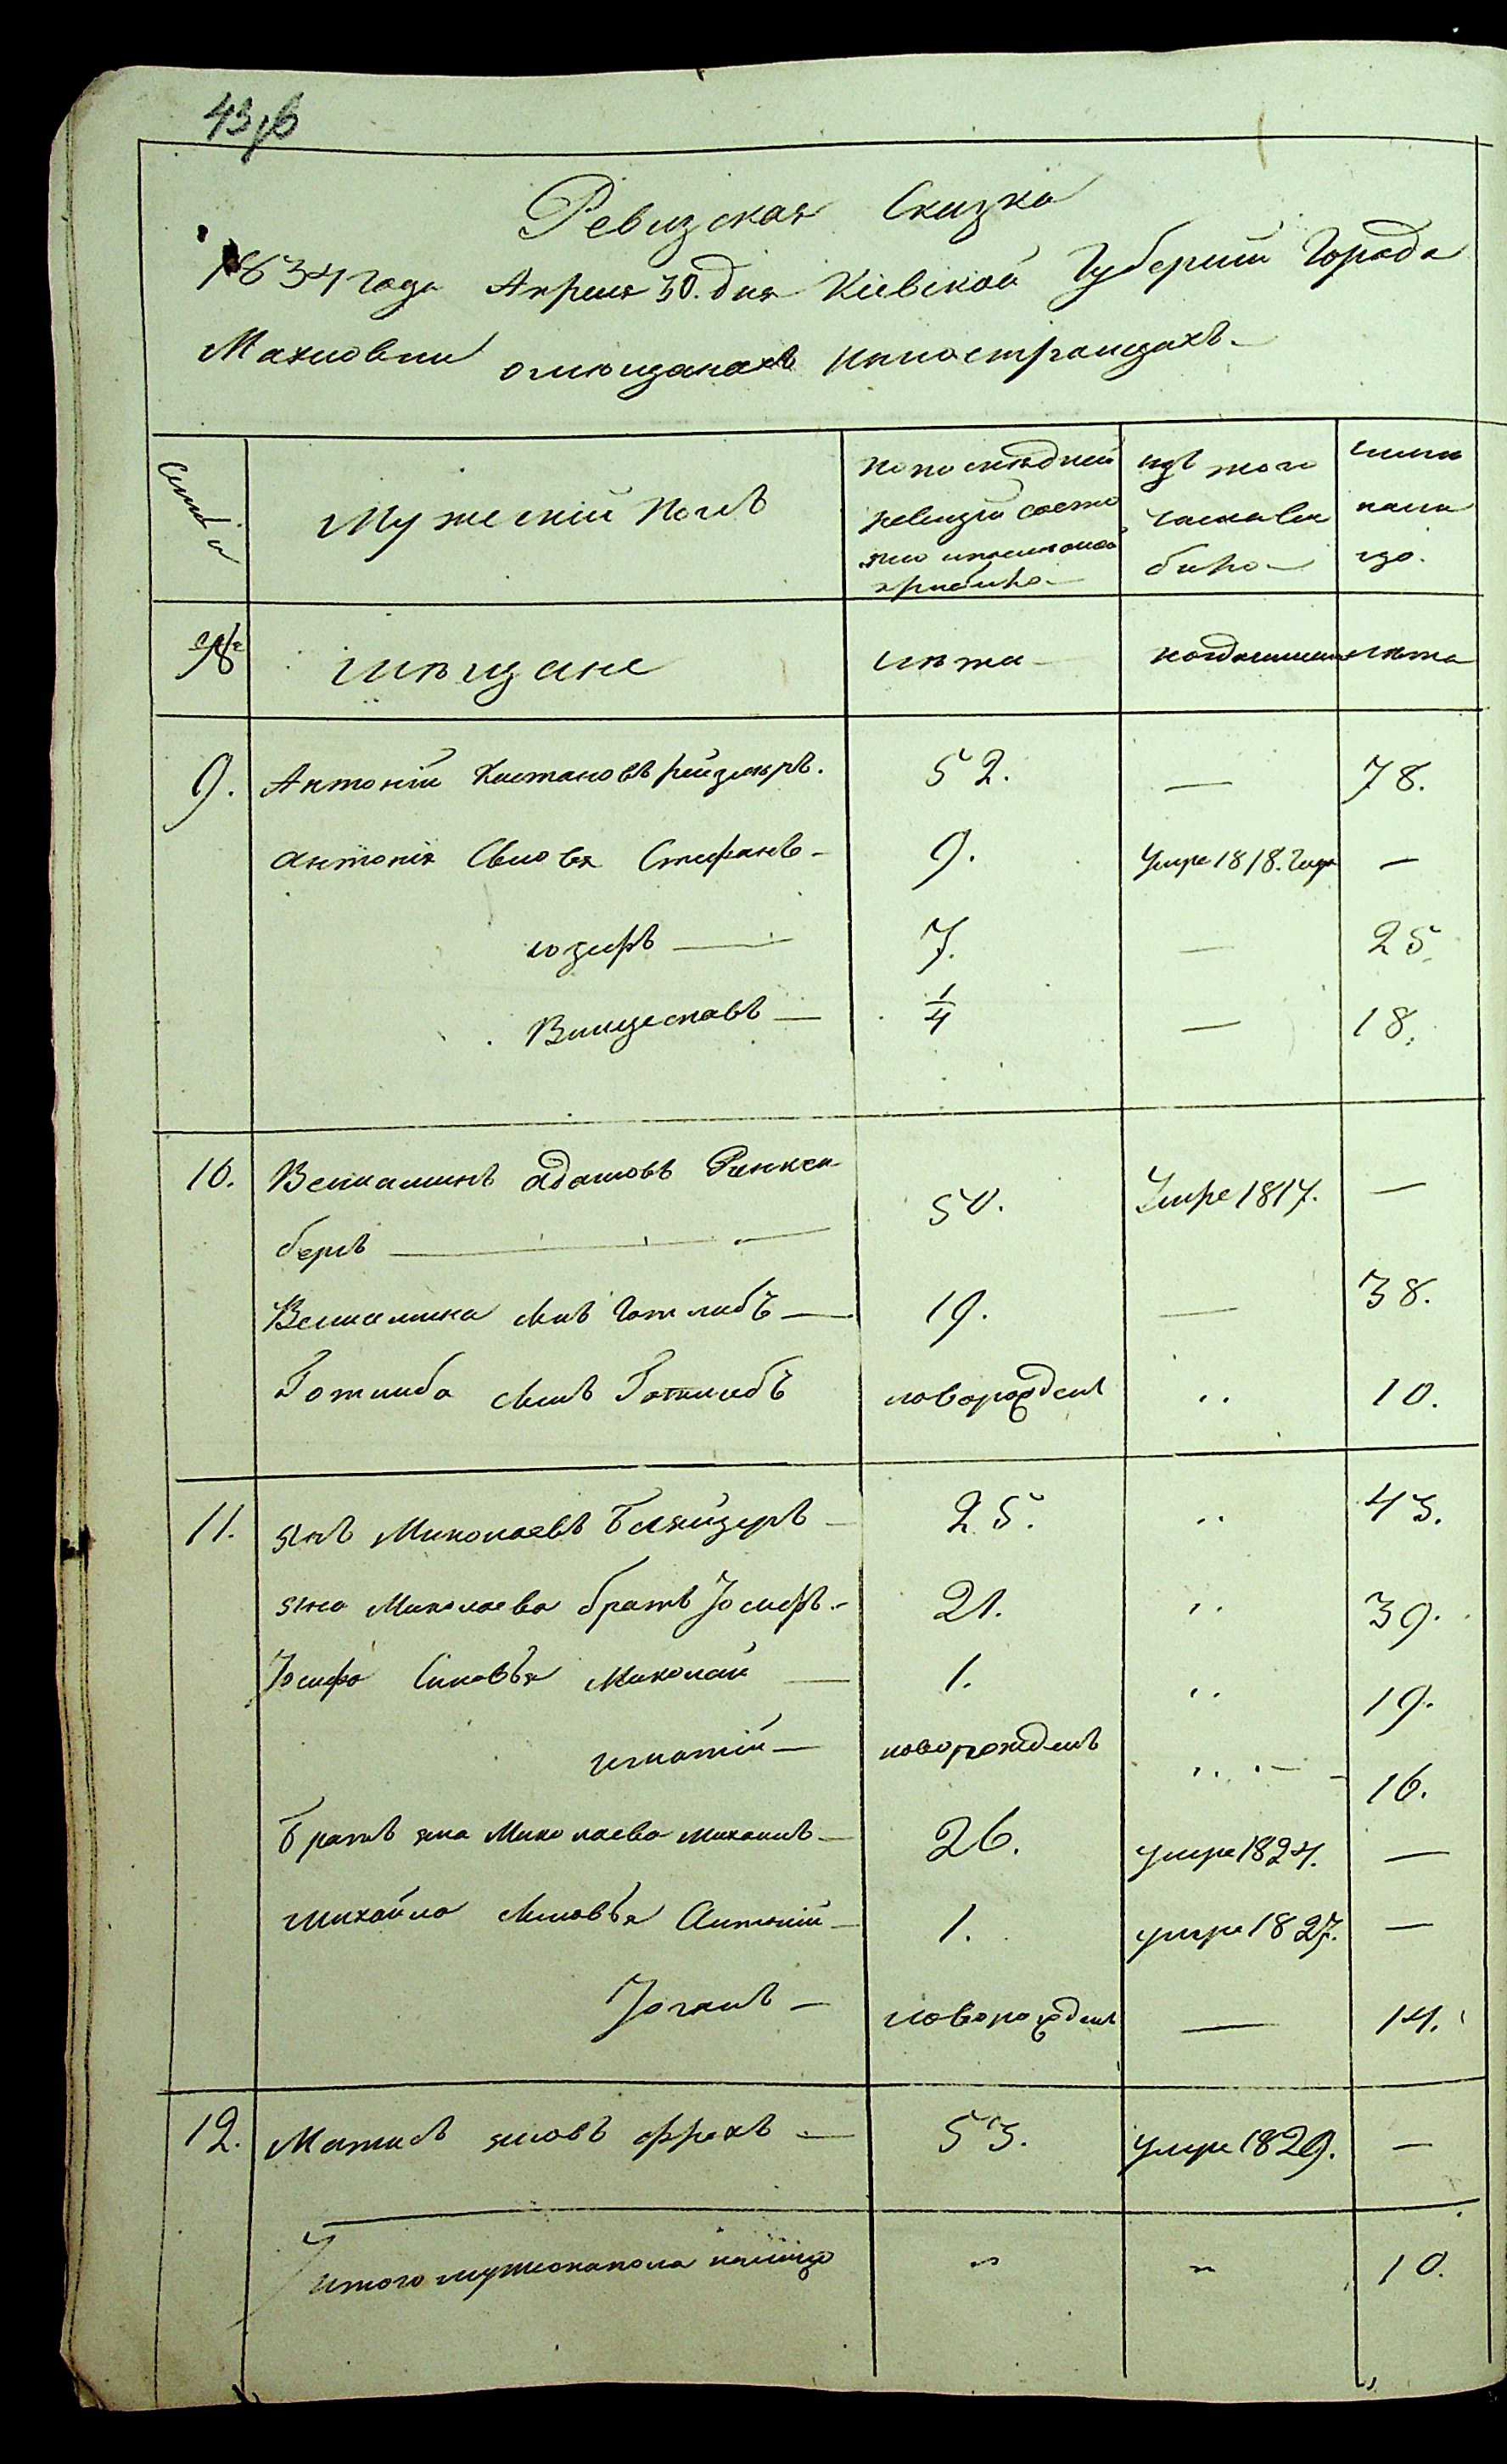 Ревизская Сказка
1834 года Апреля 30. дня Кіевской Губерніи Города
Махновки омещанахъ иностранцахъ
Семьи
Мужескій Полъ
по последней ревизіи состояло и после оной прибыло
изъ того числа выбыло
ныне на лицо.
№
мещане
лета
когда именно
лета
9. Антоній Каетановъ 52. — 78.
Антонія Сыновья Стефанъ 9. Умре 1818. года —
юзефъ — 7. — 25.
Винцеславъ — 1/4 — 18.
10. Веніаминъ Адамовъ Ринкен
бергъ — 50. Умре 1817. —
Веніамина сынъ Готлибъ — 19. — 38.
Готлиба сынъ Готлибъ новорожденъ „ 10.
11. янъ Миколаевъ 25. „ 43.
яна Миколаева братъ Іосифъ 21. „ 39.
Іосифа Сыновья Миколай — 1. „ 19.
игнатій — новорожденъ „ 16.
Братъ яна Миколаева михаилъ 26. умре 1824. —
михаила сыновья Антоній — 1. умре 1827. —
новорожденъ — 14.
12. яновъ — 53. умре 1829. —
Итого мужескапола налицо „ „ 10.